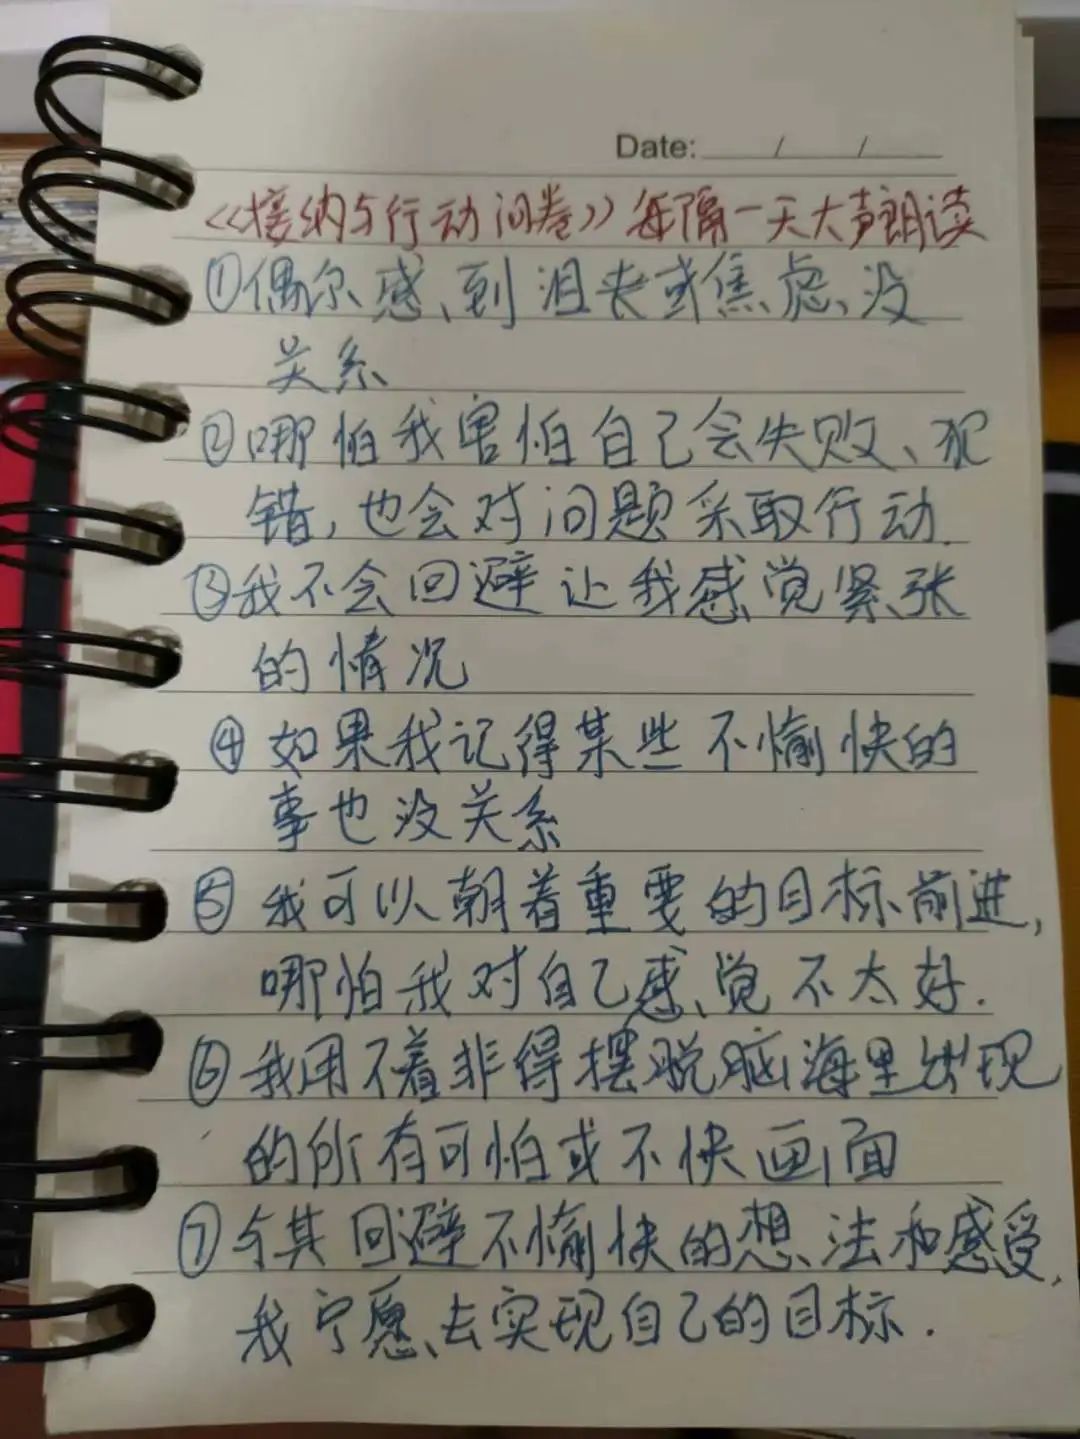 Date: / /
《接纳与行动问卷》每隔一天大声朗读
①偶尔感到沮丧或焦虑没
关系
②哪怕我害怕自己会失败、犯
错，也会对问题采取行动.
③我不会回避让我感觉紧张
的情况
④如果我记得某些不愉快的
事也没关系
⑤我可以朝着重要的目标前进,
哪怕我对自己感觉不太好.
⑥我用不着非得摆脱脑海里出现
的所有可怕或不快画面
⑦与其回避不愉快的想法和感受,
我宁愿去实现自己的目标.